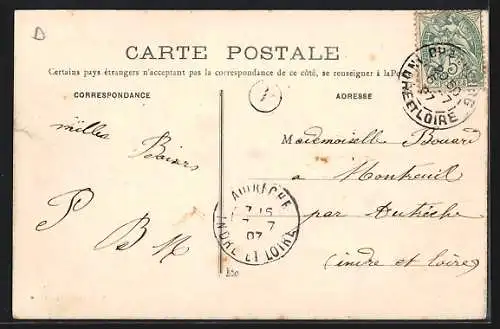 D
CARTE POSTALE
Certains pays étrangers n'acceptant pas la correspondance de ce côté, se renseigner à la Po
CORRESPONDANCE
ADRESSE
mille
Baisers
P
B M
Mademoiselle Bouard
a Montreuil
par Autrèche
(indre et loire)
AUTRÈCHE
7 15
7 - 7
07
INDRE ET LOIRE
INDRE ET LOIRE